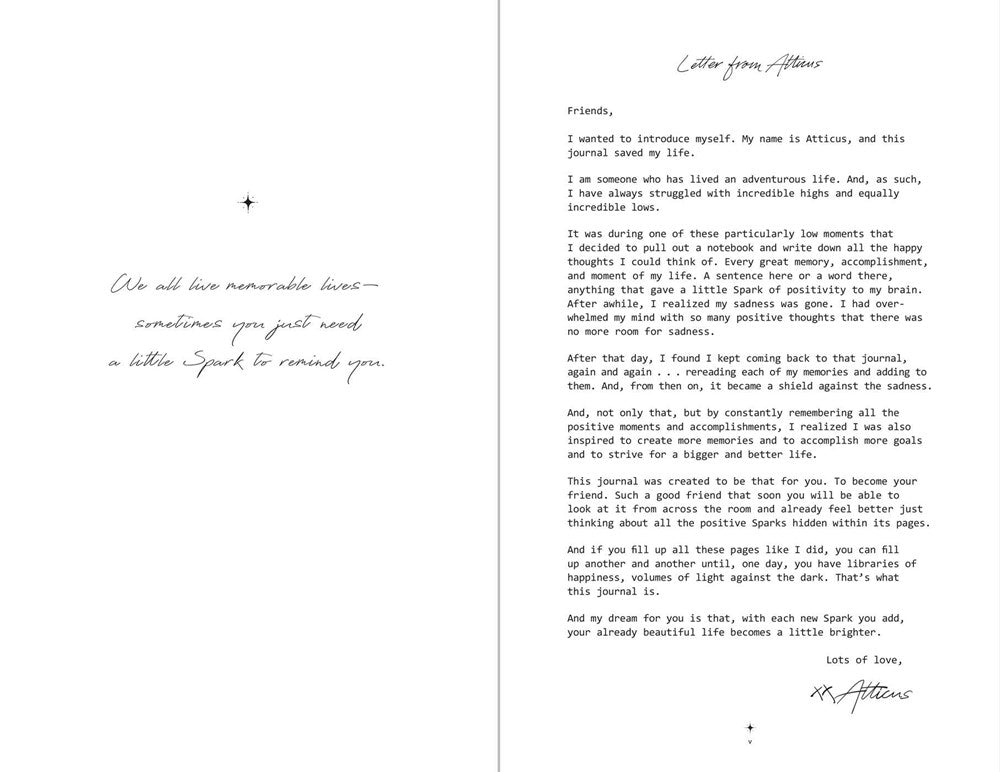 We all live memorable lives—
sometimes you just need
a little Spark to remind you.
Letter from Atticus
Friends,
I wanted to introduce myself. My name is Atticus, and this
journal saved my life.
I am someone who has lived an adventurous life. And, as such,
I have always struggled with incredible highs and equally
incredible lows.
It was during one of these particularly low moments that
I decided to pull out a notebook and write down all the happy
thoughts I could think of. Every great memory, accomplishment,
and moment of my life. A sentence here or a word there,
anything that gave a little Spark of positivity to my brain.
After awhile, I realized my sadness was gone. I had over-
whelmed my mind with so many positive thoughts that there was
no more room for sadness.
After that day, I found I kept coming back to that journal,
again and again . . . rereading each of my memories and adding to
them. And, from then on, it became a shield against the sadness.
And, not only that, but by constantly remembering all the
positive moments and accomplishments, I realized I was also
inspired to create more memories and to accomplish more goals
and to strive for a bigger and better life.
This journal was created to be that for you. To become your
friend. Such a good friend that soon you will be able to
look at it from across the room and already feel better just
thinking about all the positive Sparks hidden within its pages.
And if you fill up all these pages like I did, you can fill
up another and another until, one day, you have libraries of
happiness, volumes of light against the dark. That’s what
this journal is.
And my dream for you is that, with each new Spark you add,
your already beautiful life becomes a little brighter.
Lots of love,
xx Atticus
v